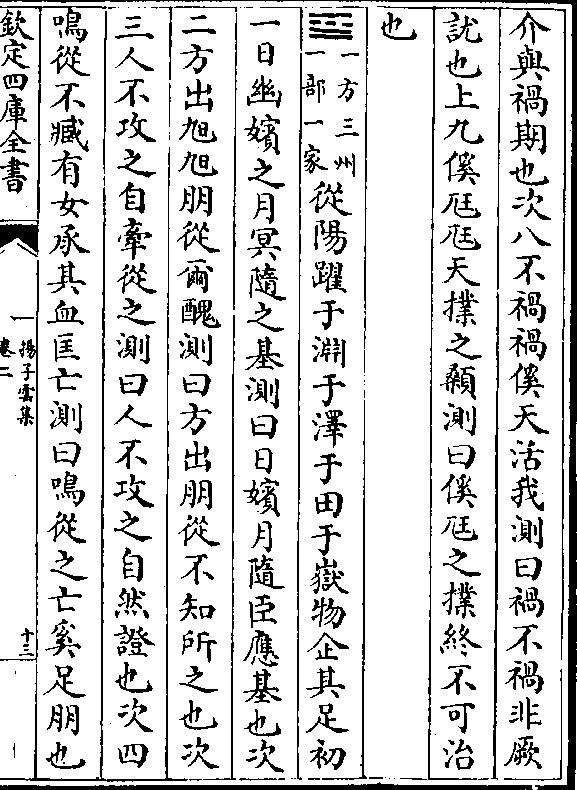 介與禍期也次八不禍禍傒天活我測曰禍不禍非厥
訧也上九傒尫尫天撲之顙測曰傒尫之撲終不可治
也
一方三州
一部一家
從陽躍于淵于澤于田于嶽物企其足初
一日幽嬪之月冥隨之基測曰日嬪月隨臣應基也次
二方出旭旭朋從爾醜測曰方出朋從不知所之也次
三人不攻之自牽從之測曰人不攻之自然證也次四
鳴從不臧有女承其血匡亡測曰鳴從之亡奚足朋也
欽定四庫全書
揚子雲集
卷二
十三